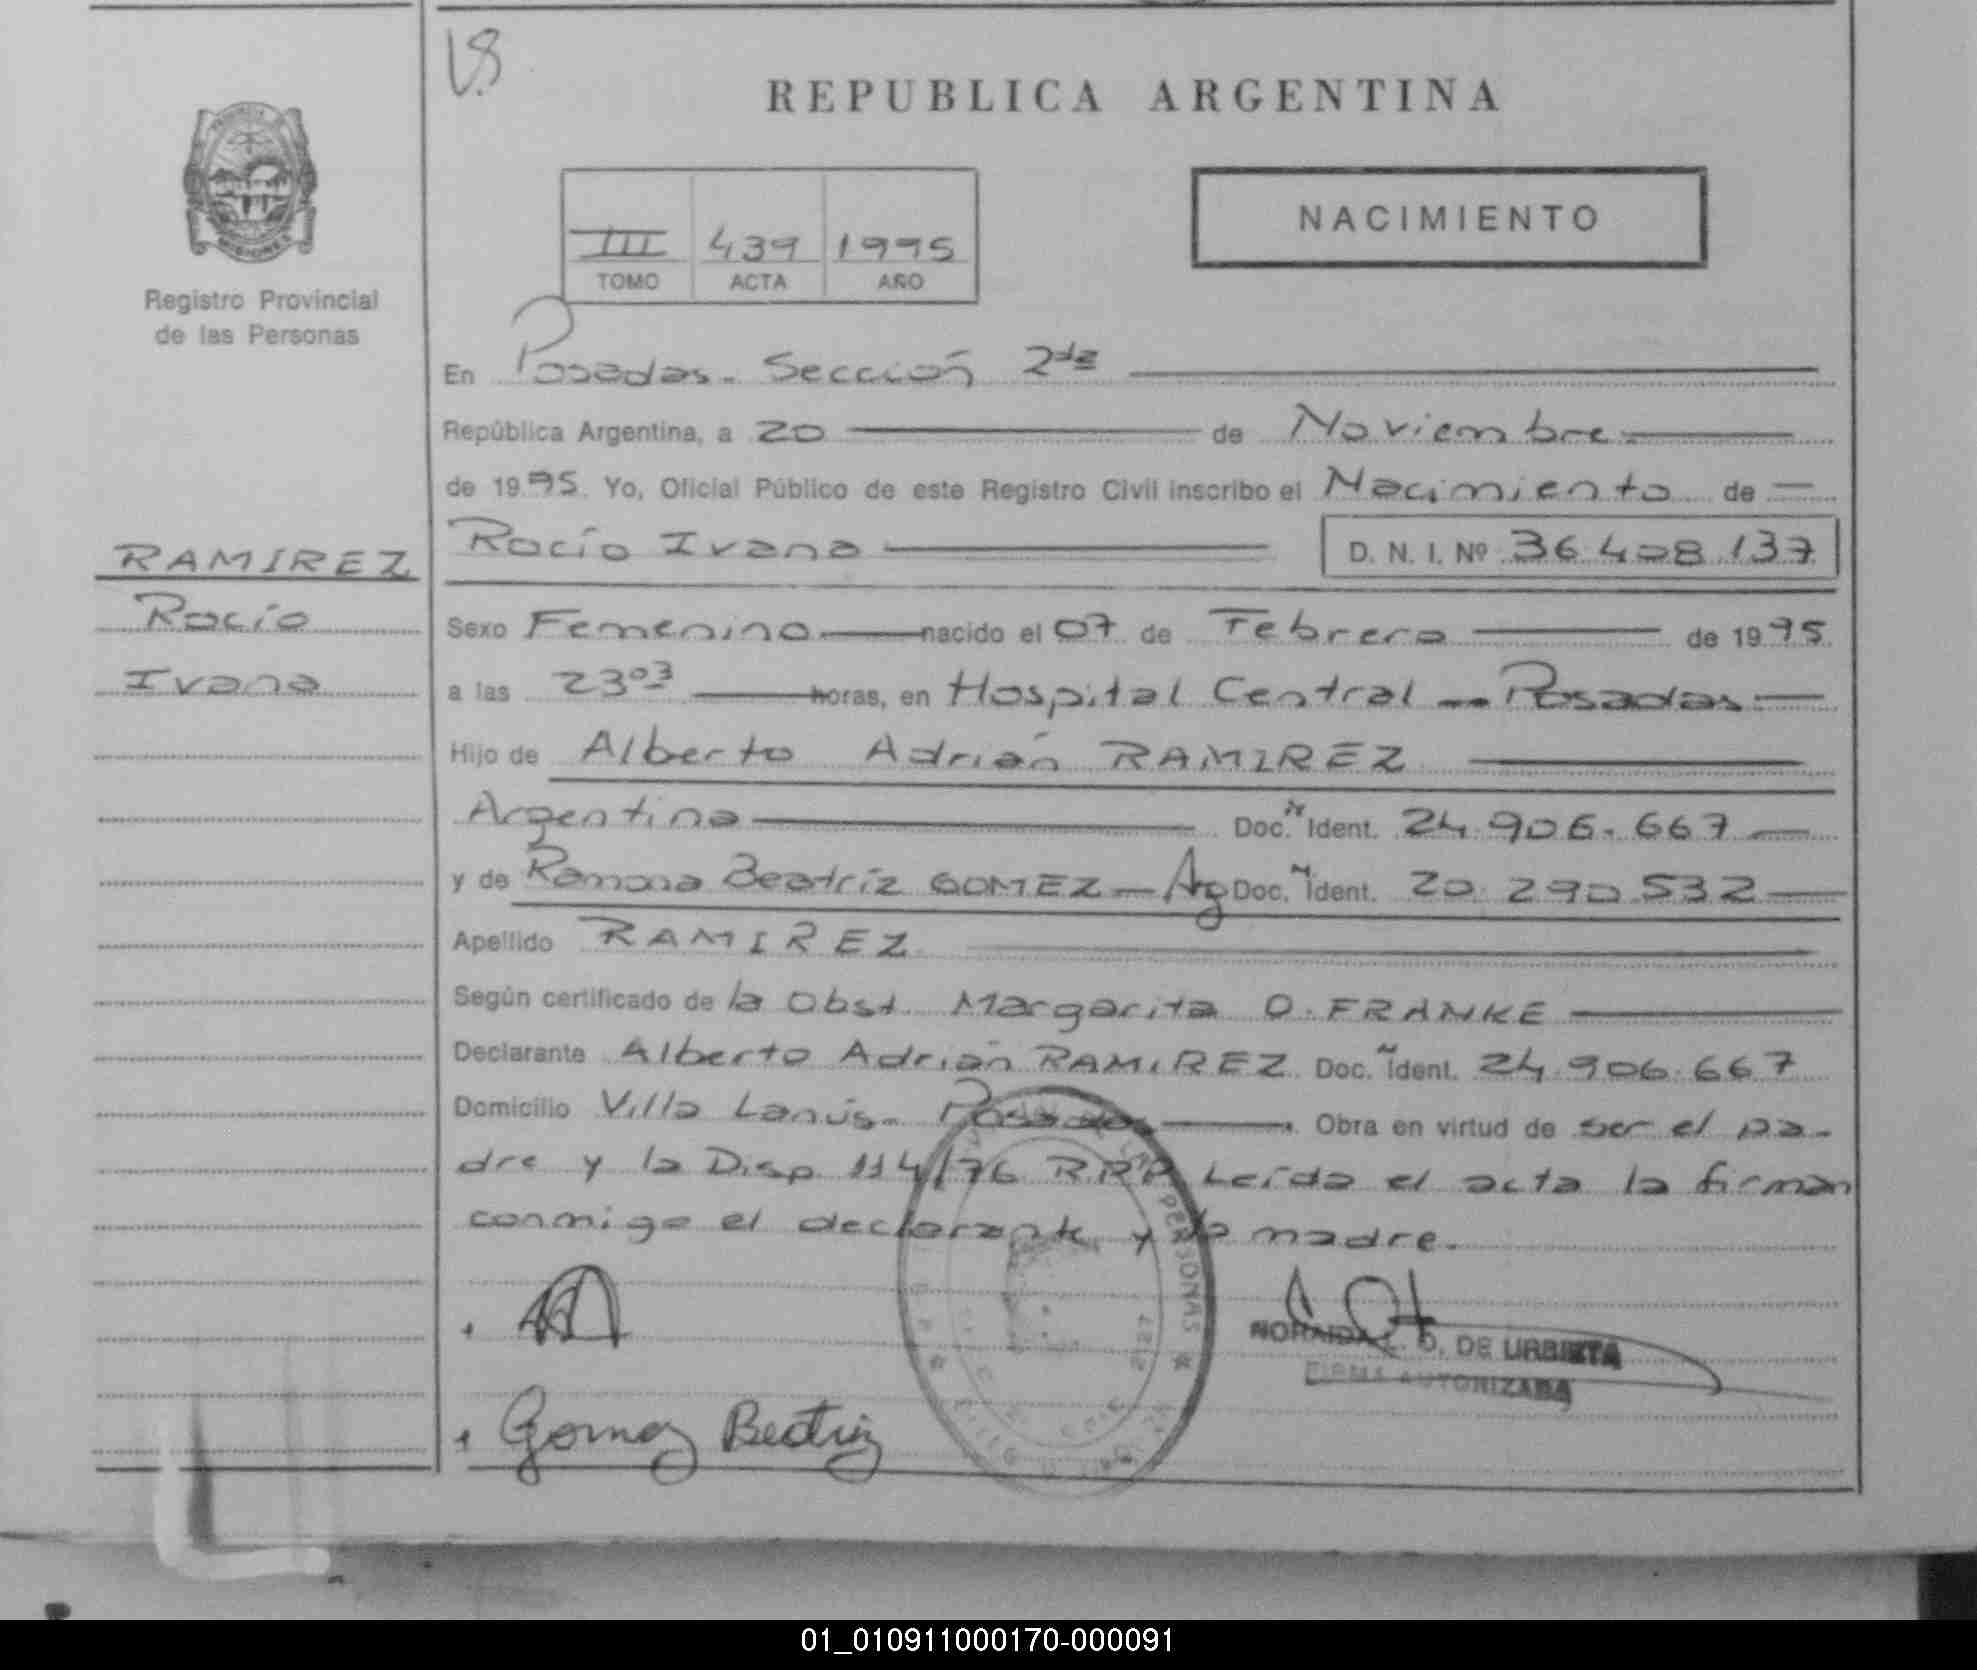 REPUBLICA ARGENTINA
NACIMIENTO
III 439 1995
TOMO ACTA AÑO
Registro Provincial
de las Personas
En Posadas - Sección 2da
República Argentina, a 20 de Noviembre
de 1995. Yo, Oficial Público de este Registro Civil inscribo el Nacimiento de
Rocío Ivana D. N. I. Nº 36.408.137
RAMIREZ
Rocío
Ivana
Sexo Femenino nacido el 07 de Febrero de 1995.
a las 23 03 horas, en Hospital Central - Posadas
Hijo de Alberto Adrián RAMIREZ
Argentina Doc. N Ident. 24.906.667
y de Ramona Beatríz GOMEZ - Ag Doc. N Ident. 20.290.532
Apellido RAMIREZ
Según certificado de la Obst. Margarita O. FRANKE
Declarante Alberto Adrián RAMIREZ Doc. N Ident. 24.906.667
Domicilio Villa Lanús - Posadas. Obra en virtud de ser el pa-
dre y la Disp 114/76 R.R.P. Leída el acta la firman
conmigo el declarante y la madre.
PERSONAS
D. DE URBIETA
FIRMA AUTORIZADA
Gomez Beatriz
01_010911000170-000091